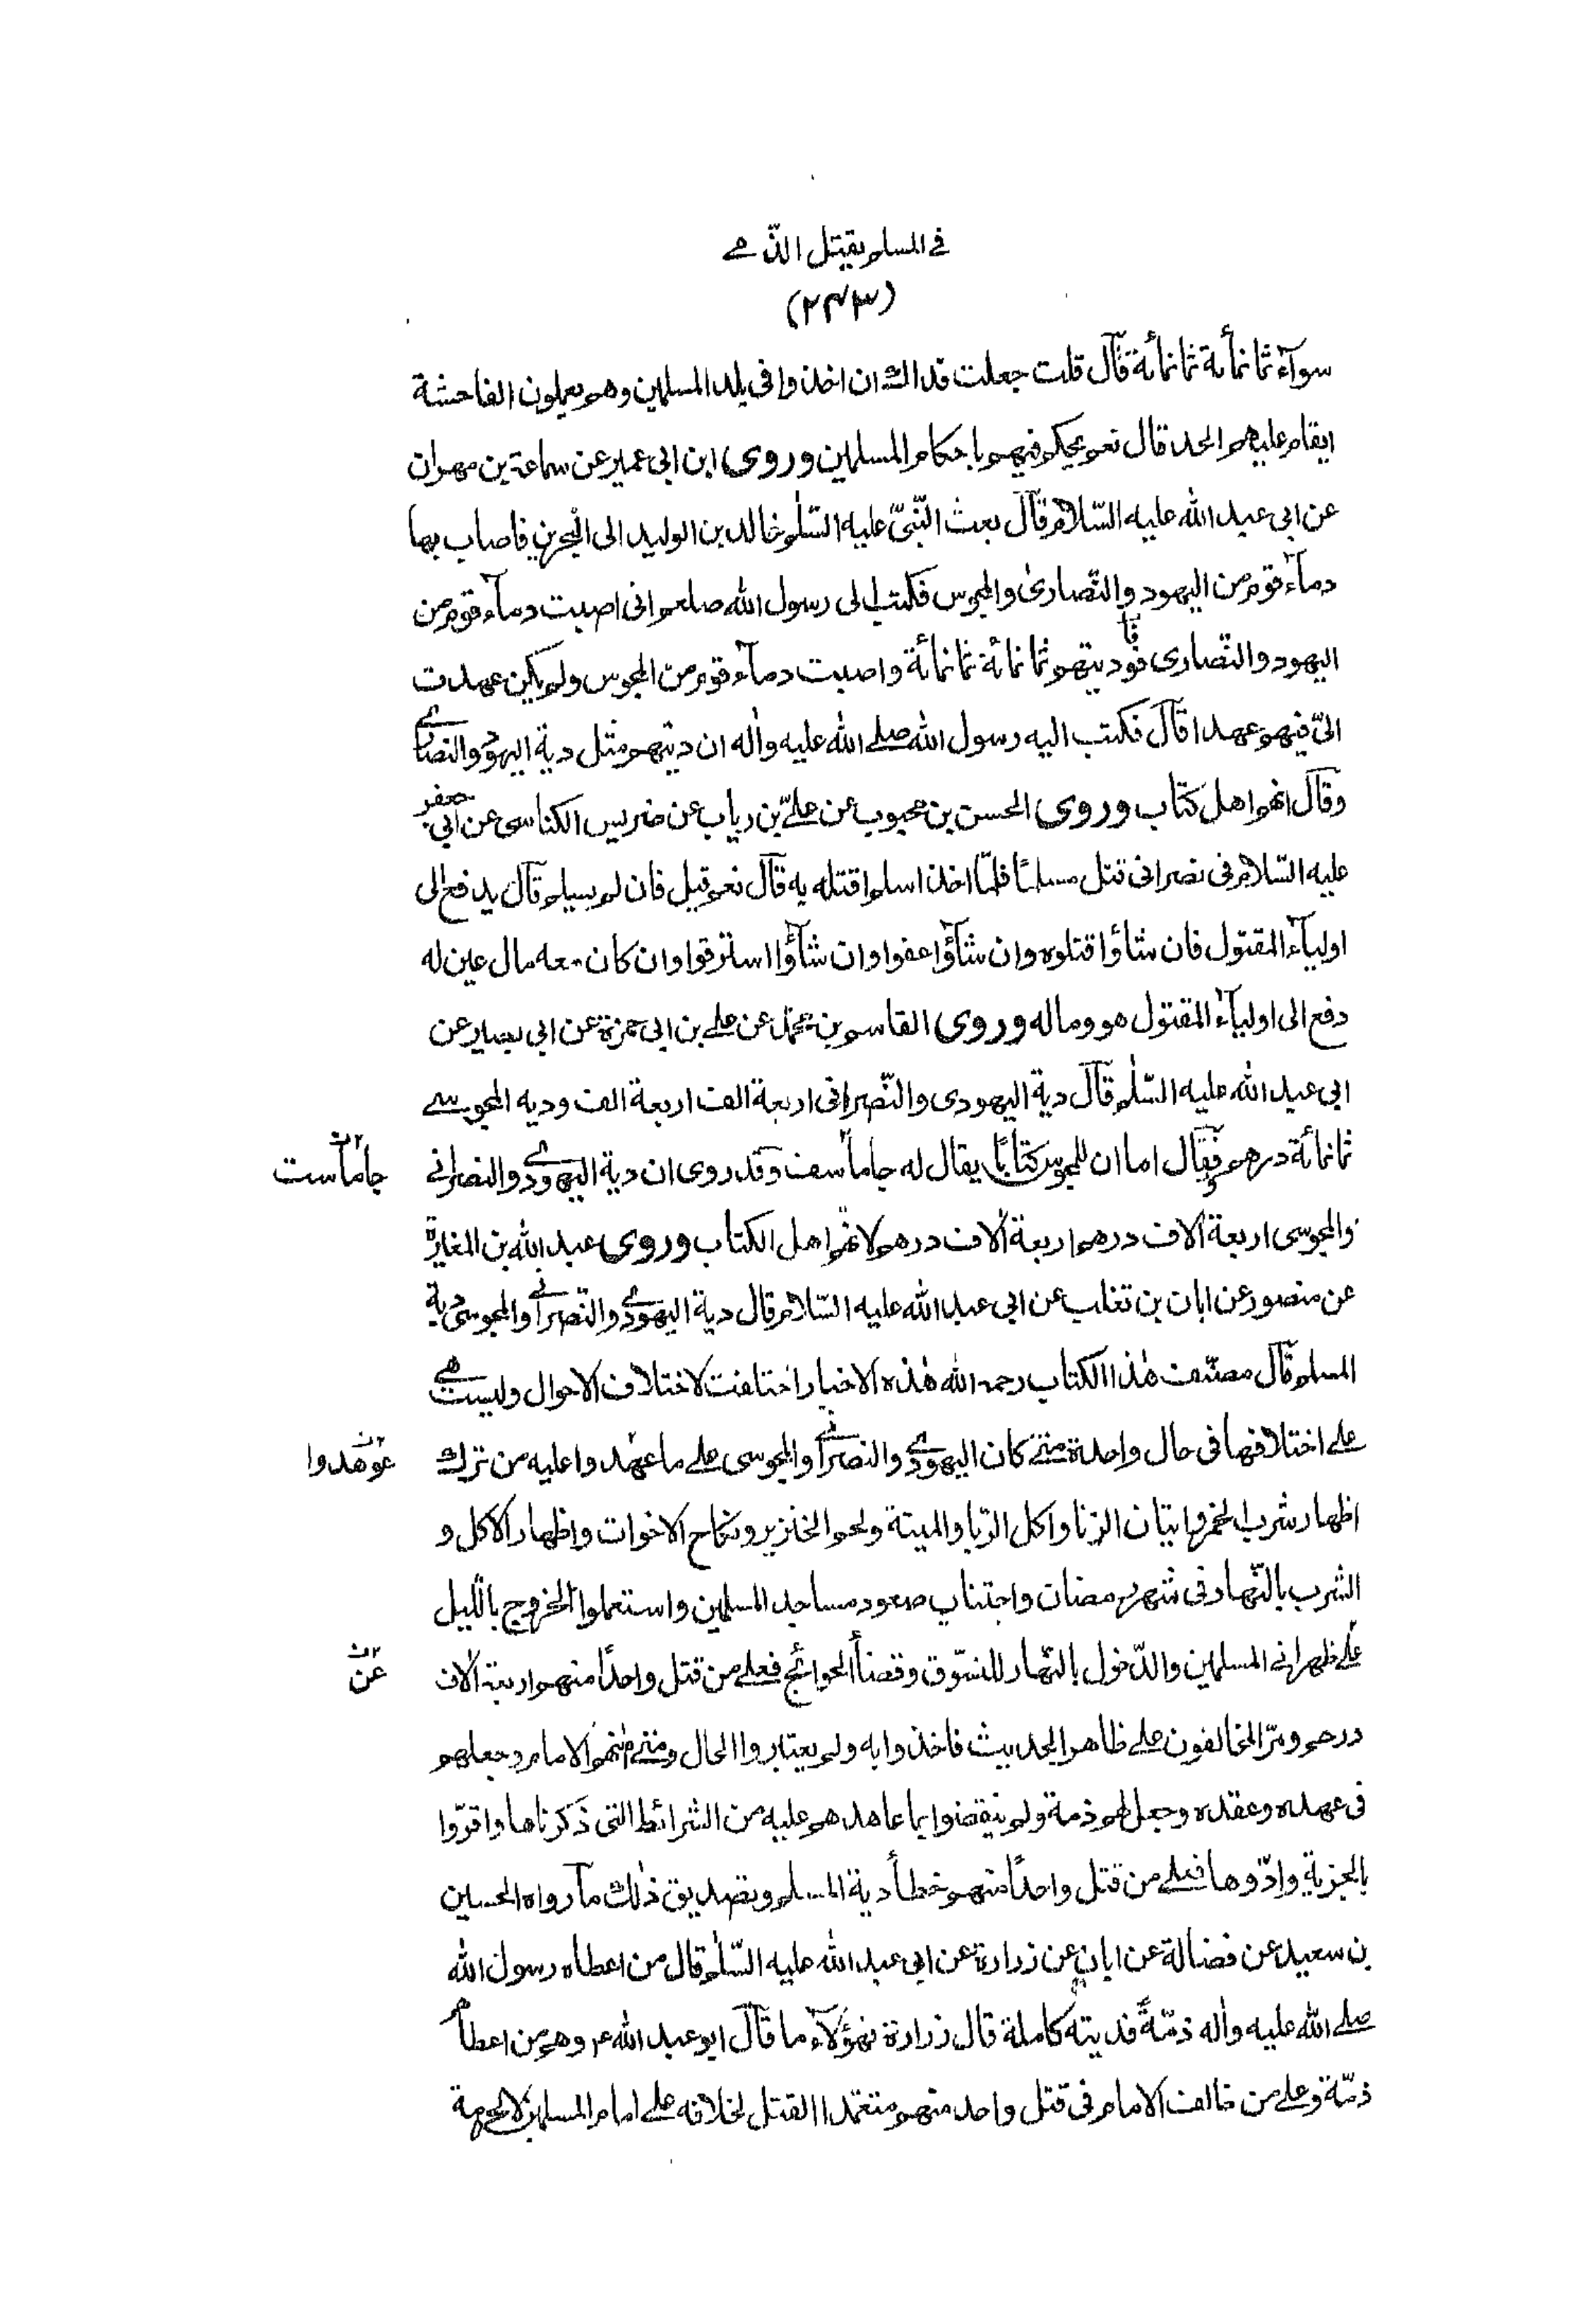 في المسلم يقتل الذمي
(٢٤٣)
سوآء ثمانمأية ثمانمأية قال قلت جعلت فداك ان اخذوا فى بلد المسلمين وهم يعملون الفاحشة
ايقام عليهم الحد قال نعم يحكم فيهم باحكام المسلمين وروى ابن ابى عمير عن سماعة بن مهران
عن ابى عبد الله عليه السّلام قال بعث النّبىّ عليه السّلم خالد بن الوليد الى البحرين فاصاب بها
دمآء قوم من اليهود والنّصارىٰ والمجوس فكتب الى رسول الله صلعم انى اصبت دمآء قوم من
اليهود والنّصارى فوديتهم ثمانمائة ثمانمائة واصبت دمآء قوم من المجوس ولم يكن عهدت
الىّ فيهم عهدا قال فكتب اليه رسول الله صلى الله عليه وآله ان ديتهم مثل دية اليهود والنصارى
وقال انهم اهل كتاب وروى الحسن بن محبوب عن علىّ بن رياب عن ضريس الكناسى عن ابى جعفر
عليه السّلام فى نصرانى قتل مسلمًا فلمّا اخذ اسلم اقتله به قال نعم قيل فان لم يسلم قال يدفع الى
اوليآء المقتول فان شاؤا قتلوه وان شآؤا عفوا وان شآؤا استرقوا وان كان معه مال عين له
دفع الى اوليآء المقتول هو وماله وروى القاسم بن محمّد عن على بن ابى حمزة عن ابى بصير عن
ابى عبد الله عليه السّلم قال دية اليهودى والنّصرانى اربعة الف اربعة الف ودية المجوسى
ثمانمائة درهم وقال اما ان للمجوس كتابًا يقال له جاماسف وقد روى ان دية اليهودى والنصرانى
جاماست
والمجوسى اربعة آلاف درهم اربعة آلاف درهم لانهم اهل الكتاب وروى عبد الله بن المغيرة
عن منصور عن ابان بن تغلب عن ابى عبد الله عليه السّلام قال دية اليهودى والنّصرانى والمجوسى دية
المسلم قال مصنّف هٰذا الكتاب رحمه الله هٰذه الاخبار اختلفت لاختلاف الاحوال وليست هى
على اختلافها فى حال واحدة متى كان اليهودى والنصرانى والمجوسى على ما عهدوا عليه من ترك
عوهدوا
اظهار شرب الخمر واتيان الزنا واكل الرّبا والميتة ولحم الخنزير ونكاح الاخوات واظهار الاكل و
الشرب بالنّهار فى شهر رمضان واجتناب صعود مساجد المسلمين واستعملوا الخروج بالليل
على ظهرانى المسلمين والدّخول بالنّهار للتسّوق وقضآ الحوائج فعلى من قتل واحدًا منهم اربعة آلاف
عن
درهم ومرّ المخالفون على ظاهر الحديث فاخذوا به ولم يعتبروا الحال ومتى آمنهم الامام وجعلهم
فى عهده وعقده وجعل لهم ذمة ولم ينقضوا بما عاهدهم عليه من الشرائط التى ذكرناها واقرّوا
بالجزية وادّوها فعلى من قتل واحدًا منهم خطأ دية المسلم وتصديق ذٰلك مآ رواه الحسين
بن سعيد عن فضالة عن ابان عن زرارة عن ابى عبد الله عليه السّلم قال من اعطاه رسول الله
صلى الله عليه وآله ذمّةً فديته كاملة قال زرارة فهؤلآء ما قال ابو عبد الله ع وهم من اعطاهم
ذمّة وعلى من خالف الامام فى قتل واحد منهم متعمّدا القتل لخلافه على امام المسلمين لا لحرمة